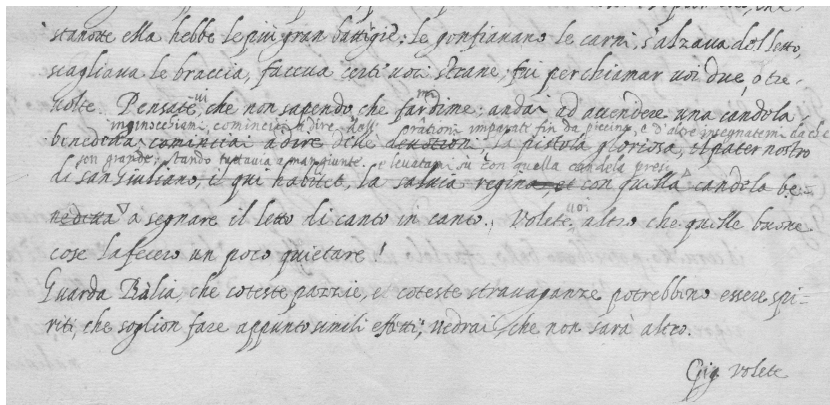 stanotte ella hebbe le più gran battigie: le gonfiavano le carni, s'alzava dal letto,
scagliava le braccia, faceva certi voci strane; fui per chiamar voi due, o tre
volte. Pensate vi, che non sapendo che farmi dime; andai ad accendere una candola
m'inginocchiai, cominciai a dire dell' orationi imparate fin da piccina, e d'altre insegnatemi da che
benedetta, cominciai a dire diche devotion: la pistola gloriosa, il paternostro
son grande; stando tuttavia a man giunte. e levatami su con quella candela prese
di san Giuliano, il qui habitet, la salvia regina, et con quella candela be-
nedetta a segnare il letto di canto in canto. Volete voi altro che quelle buone
cose la fecero un poco quietare!
Guarda Ràlia, che coteste pazzie, e coteste stravaganze potrebbino essere spi-
riti, che soglion fare appunto simili effetti; vedrai, che non sarà altro.
Gig. Volete